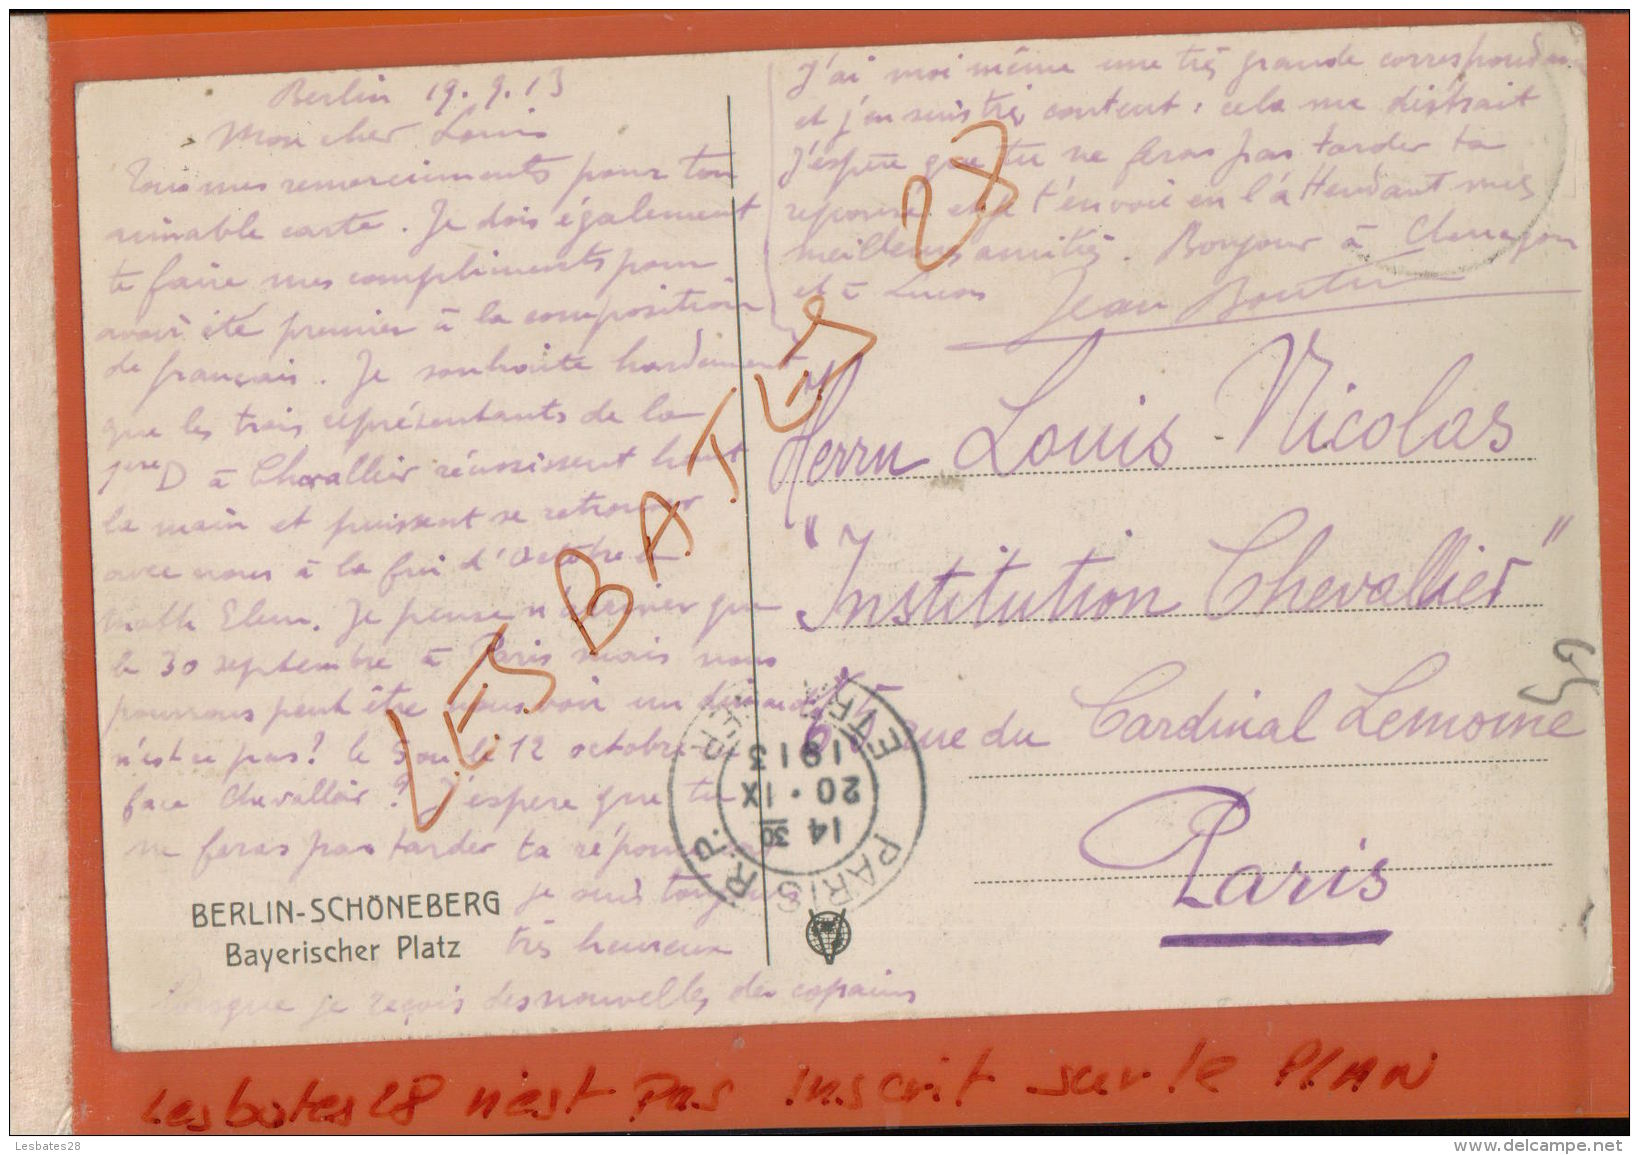 Berlin 19.9.13
Mon cher Louis
Tous mes remerciements pour ton
aimable carte. Je dois également
te faire mes compliments pour
avoir été premier à la composition
de français. Je souhaite hardiment
que les trois représentants de la
1ère D à Chevallier réussissent haut
la main et puissent se retrouver
avec nous à la fin d'Octobre en
math Elem. Je pense n'arriver que
le 30 septembre à Paris mais nous
pourrons peut être nous voir un dimanche
n'est ce pas? le 5 ou le 12 octobre
face Chevallier? J'espere que tu
ne feras pas tarder ta réponse car
je suis toujours
très heureux
Lorsque je reçois des nouvelles des copains
J'ai moi même une très grande correspondan
et j'en suis très content, cela me distrait
J'espère que tu ne feras pas tarder ta
reponse et je t'envoie en l'attendant mes
meilleurs amitiés. Bonjour à
et à Lucas
Jean
Herrn Louis Nicolas
"Institution Chevallier"
65 rue du Cardinal Lemoine
Paris
65
PARIS R.P.
14 30
20 · IX
1913
BERLIN-SCHÖNEBERG
Bayerischer Platz
LES BATES 28
Lesbates28 n'est Pas inscrit sur le PLAN
Lesbates28
www.delcampe.net